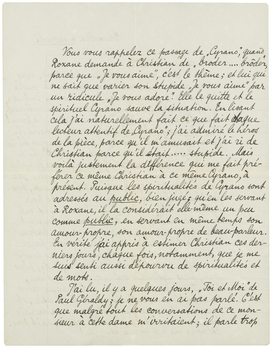 Vous vous rappelez ce passage de „Cyrano“, quand
Roxane demande à Christian de „broder .... broder„
parce que „Je vous aime“, c'est le thème; et lui que
ne sait que varier son stupide „Je vous aime“ par
un ridicule „Je vous adore“. Elle le quitte et le
spirituel Cyrano sauve la situation. En lisant
cela j'ai naturellement fait ce que fait chaque
lecteur attentif de „Cyrano“; j'ai admiré le héros
de la pièce, parce qu'il m'amusait et j'ai ri de
Christian parce qu'il était ..... stupide. Mais
voilà justement la différence que me fait préfé-
rer ce même Christian à ce même Cyrano, à
présent. Puisque les spiritualités de Cyrano sont
adressés au public, bien juge; qu'en les servant
à Roxane, il la considérait elle même un peu
comme public, en servant en même temps son
amour-propre, son amour-propre de beau-parleur.
En vérité j'ai appris à estimer Christian ces der-
niers jours, chaque fois, notamment, que je me
suis senti aussi dépourvu de spiritualités et
de mots.
J'ai lu, il y a quelques jours, „Toi et Moi“ de
Paul Géraldy; je ne vous en ai pas parlé. C'est
que malgré tout les conversations de ce mon-
sieur à cette dame m'irritaient; il parle trop